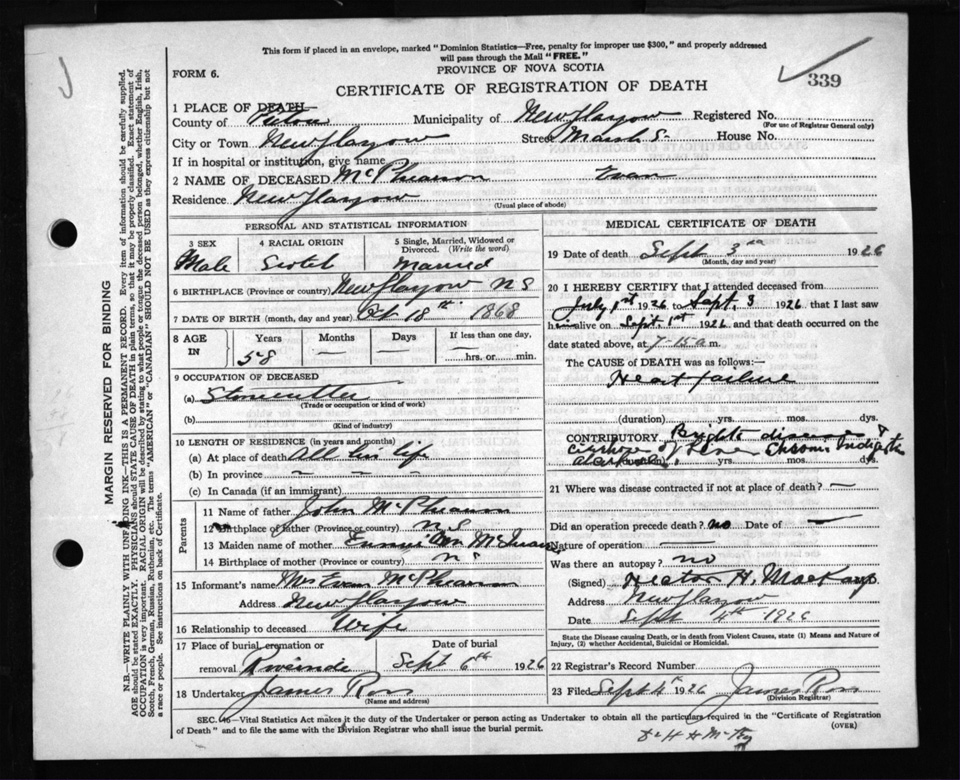 This form if placed in an envelope, marked "Dominion Statistics—Free, penalty for improper use $300," and properly addressed
will pass through the Mail "FREE."
FORM 6.
PROVINCE OF NOVA SCOTIA
339
CERTIFICATE OF REGISTRATION OF DEATH
1 PLACE OF DEATH—
County of Pictou Municipality of New Glasgow Registered No.
(For use of Registrar General only)
City or Town New Glasgow Street Marsh S. House No.
If in hospital or institution, give name
2 NAME OF DECEASED McPhearson Evan
Residence New Glasgow
(Usual place of abode)
PERSONAL AND STATISTICAL INFORMATION
3 SEX 4 RACIAL ORIGIN 5 Single, Married, Widowed or
Divorced. (Write the word)
Male Scotch Married
6 BIRTHPLACE (Province or country) New Glasgow N S
7 DATE OF BIRTH (month, day and year) Oct 18th 1868
8 AGE IN Years Months Days If less than one day,
58 — — — hrs. or min.
9 OCCUPATION OF DECEASED
(a) Stonecutter
(Trade or occupation or kind of work)
(b)
(Kind of industry)
10 LENGTH OF RESIDENCE (in years and months)
(a) At place of death All his life
(b) In province — —
(c) In Canada (if an immigrant)
Parents
11 Name of father John McPhearson
12 Birthplace of father (Province or country) N S
13 Maiden name of mother
14 Birthplace of mother (Province or country) N S
15 Informant's name Mrs Evan McPhearson
Address New Glasgow
16 Relationship to deceased Wife
17 Place of burial, cremation or Date of burial
removal Riverside Sept 6th 1926
18 Undertaker James Ross
(Name and address)
MEDICAL CERTIFICATE OF DEATH
19 Date of death Sept 3rd 1926
(Month, day and year)
20 I HEREBY CERTIFY that I attended deceased from
July 1st 1926 to Sept. 3 1926, that I last saw
him alive on Sept. 1st 1926 and that death occurred on
date stated above, at 7-15 a m.
The CAUSE OF DEATH was as follows:—
Heart failure
(duration) yrs. mos. dys.
CONTRIBUTORY Brights disease &
cirrhosis of Liver Chronic Indigestion
(duration) yrs. mos. dys.
21 Where was disease contracted if not at place of death? —
Did an operation precede death? no Date of —
Nature of operation —
Was there an autopsy? no
(Signed) Hector H. MacKay
Address New Glasgow
Date Sept 4th 1926
State the Disease causing Death, or in death from Violent Causes, state (1) Means and Nature of
Injury, (2) whether Accidental, Suicidal or Homicidal.
22 Registrar's Record Number
23 Filed Sept 4th 1926 James Ross
(Division Registrar)
SEC. 16—Vital Statistics Act makes it the duty of the Undertaker or person acting as Undertaker to obtain all the particulars required in the "Certificate of Registration
of Death" and to file the same with the Division Registrar who shall issue the burial permit.
(OVER)
Dr H H McKay
MARGIN RESERVED FOR BINDING
N.B.—WRITE PLAINLY WITH UNFADING INK—THIS IS A PERMANENT RECORD. Every item of information should be carefully supplied.
AGE should be stated EXACTLY. PHYSICIANS should STATE CAUSE OF DEATH in plain terms, so that it may be properly classified. Exact statement of
OCCUPATION is very important. RACIAL ORIGIN will be described by stating to what people or tongue the deceased person belonged, whether English, Irish,
Scotch, French, German, Russian, Ruthenian, etc. The terms "AMERICAN" or "CANADIAN" SHOULD NOT BE USED as they express citizenship but not
a race or people. See instructions on back of Certificate.